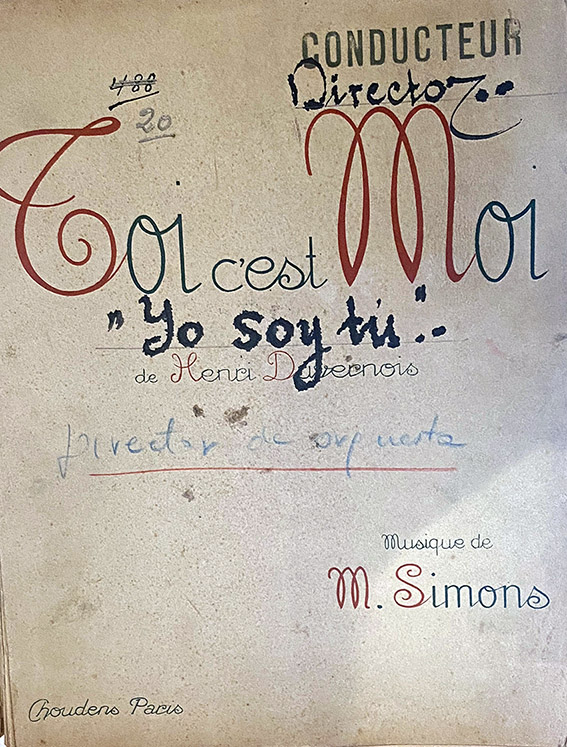 CONDUCTEUR
Director..-
400
20
Toi c'est Moi
"Yo soy tú".-
de Henri Duvernois
Director de orquesta
Musique de
M. Simons
Choudens Paris